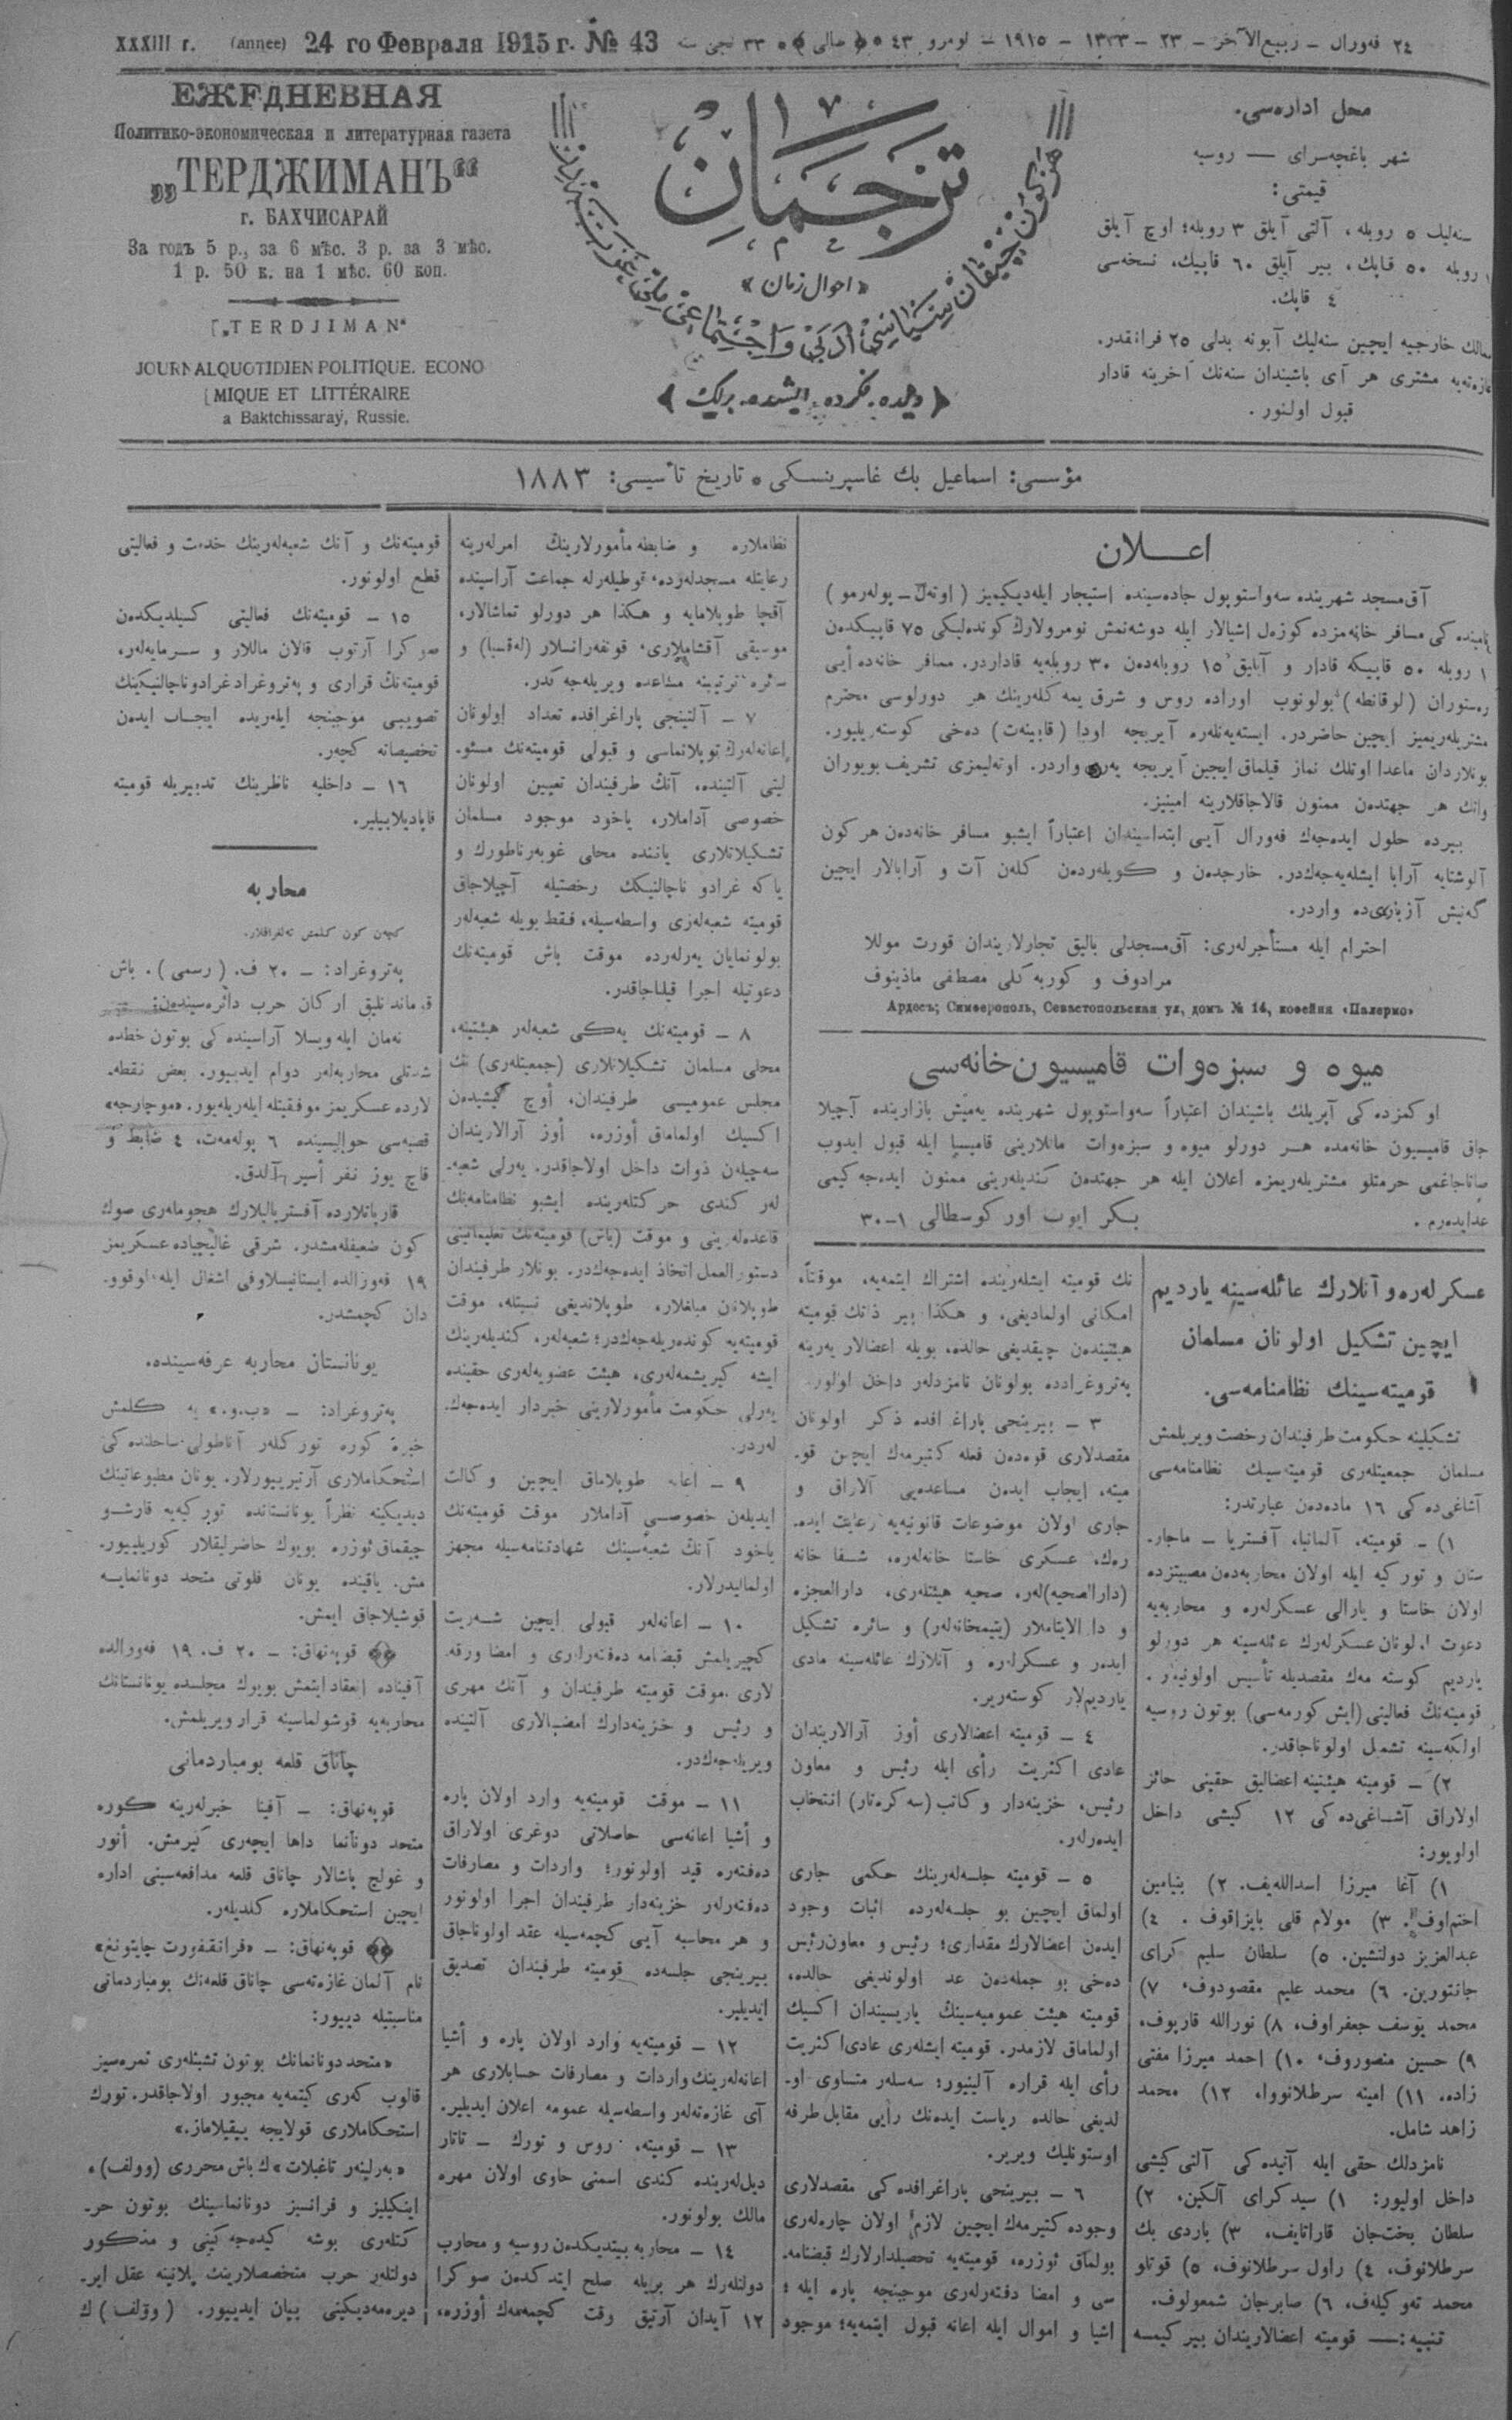 XXXIII г. (annee) 24 го Февраля 1915 г. № 43
٢٤ فەورال – ربيع‌الآخر – ٢٣ – ١٣٣٣ – ١٩١٥ – نومرو ٤٣ ﴿صالى﴾ ٣٣ نجى سنه
ЕЖЕДНЕВНАЯ
Политико-экономическая и литературная газета
„ТЕРДЖИМАНЪ“
г. БАХЧИСАРАЙ
За годъ 5 р., за 6 мѣс. 3 р. за 3 мѣс.
1 р. 50 к. на 1 мѣс. 60 коп.
[„TERDJIMAN“
JOURNALQUOTIDIEN POLITIQUE. ECONO
[MIQUE ET LITTÉRAIRE
a Baktchissaraÿ, Russie.
ترجمان
«احوال زمان»
هر كون چيقان سياسى، ادبى و اجتماعى ملى غزيتەدر
﴿ ديلده، فكرده، ايشده، بريلك ﴾
محل ادارەسى.
شهر باغچەسراى — روسيه
قيمتى:
سنەليك ٥ روبله، آلتى آيلق ٣ روبله؛ اوچ آيلق
١ روبله ٥٠ قاپك، بير آيلق ٦٠ قاپيك، نسخەسى
٤ قاپك.
ممالك خارجيه ايچين سنەليك آبونه بدلى ٢٥ فرانقدر.
غازەتەيه مشترى هر آى باشيندان سنەنك آخرينه قادار
قبول اولنور.
مؤسسى: اسماعيل بك غاسپرينسكى • تاريخ تأسيسى: ١٨٨٣
اعـــلان
آق‌مسجد شهرينده سەواستوپول جادەسينده استيجار ايلەديكيميز (اوتەل – پولەرمو)
نامنده كى مسافر خانەمزده كوزەل اشيالار ايله دوشەنمش نومرولارڭ كوندەليكى ٧٥ قاپيكدەن
١ روبله ٥٠ قاپيكه قادار و آيليق ١٥ روبلەدەن ٣٠ روبلەيه قاداردر. مسافر خانەده أيى
رەستوران (لوقانطه) بولونوب اوراده روس و شرق يمەكلەرينك هر دورلوسى محترم
مشتريلەريميز ايچين حاضردر. ايستەيەنلەره آيريجه اودا (قابينەت) دەخى كوستەريليور.
بونلاردان ماعدا اوتلك نماز قيلماق ايچين آيريجه يەرى واردر. اوتەليمزى تشريف بويوران
وانك هر جهتدەن ممنون قالاجاقلارينه امينيز.
بيرده حلول ايدەجەك فەورال آيى ابتداسيندان اعتباراً ايشبو مسافر خانەدەن هر كون
آلوشتايه آرابا ايشلەيەجەكدر. خارجدەن و كويلەردەن كلەن آت و آرابالار ايچين
گەنيش آزبارى‌ده واردر.
احترام ايله مستأجرلەرى: آق‌مسجدلى باليق تجارلاريندان قورت موللا
مرادوف و كوربەكلى مصطفى ماذينوف
Адресъ; Симферополь, Севастопольская ул, домъ № 14, кофейня «Палермо»
ميوه و سبزەوات قاميسيون‌خانەسى
اوكمزدەكى آپريلك باشيندان اعتباراً سەواستوپول شهرينده يەميش بازارينده آچيلا
جاق قاميسيون خانەمده هـر دورلو ميوه و سبزەوات ماللارينى قاميسيا ايله قبول ايدوب
صاتاجاغمى حرمتلو مشتريلەريمزه اعلان ايله هر جهتدەن كنديلەرينى ممنون ايدەجەكيمى
عدايدەرم.
بـكر ايوب اور كوسطالى ١-٣٠
عسكرلەره و آنلارك عائلەسينه يارديم
ايچين تشكيل اولونان مسلمان
قوميتەسينك نظامنامەسى.
تشكيلينه حكومت طرفيندان رخصت ويريلمش
مسلمان جمعيتلەرى قوميتەسينك نظامنامەسى
آشاغى‌دەكى ١٦ مادەدەن عبارتدر:
١) – قوميته، آلمانيا، آفستريا – ماجار.
ستان و توركيه ايله اولان محاربەدەن مصيبتزده
اولان خاستا و يارالى عسكرلەره و محاربەيه
دعوت اولونان عسكرلەرك عائلەسينه هر دورلو
يارديم كوستەرمەك مقصديله تأسيس اولونيور.
قوميتەنڭ فعاليتى (ايش كورمەسى) بوتون روسيه
اولكەسينه تشميل اولوناجاقدر.
٢) – قوميته هيئتينه اعضاليق حقينى حائز
اولاراق آشاغى‌دەكى ١٢ كيشى داخل
اولويور:
١) آغا ميرزا اسداللەيف. ٢) بنيامين
احتم‌اوف. ٣) مولام قلى بايزاقوف. ٤)
عبدالعزيز دولتشين. ٥) سلطان سليم كراى
جانتورين. ٦) محمد عليم مقصودوف، ٧)
محمد يوسف جعفراوف، ٨) نورالله قاريوف،
٩) حسين منصوروف، ١٠) احمد ميرزا مفتى
زاده، ١١) امينه سرطلانووا، ١٢) محمد
زاهد شامل.
نامزدلك حقى ايله آتيدەكى آلتى كيشى
داخل اوليور: ١) سيد كراى آلكين، ٢)
سلطان بخت‌جان قاراتايف، ٣) ياردى بك
سرطلانوف، ٤) راول سرطلانوف، ٥) قوتلو
محمد تەوكيلەف، ٦) صابرجان شمعولوف.
تنبيه: — قوميته اعضالاريندان بير كيمسه
نك قوميته ايشلەرينده اشتراك ايتمەيه، موقتاً،
امكانى اولماديغى، و هكذا بير ذاتك قوميته
هيئتيندەن چيقديغى حالده، بويله اعضالار يەرينه
پەتروغرادده بولونان نامزدلەر داخل اولور.
٣ – بيرينجى پاراغرافده ذكر اولونان
مقصدلارى قوەدەن فعله كتيرمەك ايچين قو.
ميته، ايجاب ايدەن مساعدەيى آلاراق و
جارى اولان موضوعات قانونيەيه رعايت ايده.
رەك، عسكرى خاستا خانەلەره، شـفا خانه
(دارالصحيه)لەر، صحيه هيئتلەرى، دارالعجزه
و دا الايتاملار (يتيمخانەلەر) و سائره تشكيل
ايدەر و عسكرلەره و آنلارك عائلەسينه مادى
يارديم‌لار كوستەرير.
٤ – قوميته اعضالارى أوز آرالاريندان
عادى اكثريت رأى ايله رئيس و معاون
رئيس، خزينەدار و كاتب (سەكرەتار) انتخاب
ايدەرلەر.
٥ – قوميته جلسەلەرينك حكمى جارى
اولماق ايچين بو جلسەلەرده اثبات وجود
ايدەن اعضالارك مقدارى؛ رئيس و معاون‌رئيس
دەخى بو جملەدەن عد اولونديغى حالده،
قوميته هيئت عموميەسينڭ ياريسيندان اكسيك
اولماماق لازمدر. قوميته ايشلەرى عادى‌اكثريت
رأى ايله قراره آلينيور؛ سەسلەر متساوى او.
لديغى حالده رياست ايدەنك رأيى مقابل طرفه
اوستونليك ويرير.
٦ – بيرينجى پاراغرافدەكى مقصدلارى
وجوده كتيرمەك ايچين لازم اولان چارەلەرى
بولماق ئوزره، قوميتەيه تحصيلدارلارك قبضنامه.
سى و امضا دفتەرلەرى موجبنجه پاره ايله؛
اشيا و اموال ايله اعانه قبول ايتمەيه؛ موجود
نظاملاره و ضابطه مأمورلارينڭ امرلەرينه
رعايتله مسجدلەرده، توطيلەرله جماعت آراسينده
آقچا طوپلامايه و هكذا هر دورلو تماشالار،
موسيقى آقشاملارى، قونفەرانسلار (لەقسيا) و
سائره ترتيبنه مساعده ويريلەجەكدر.
٧ – آلتينجى پاراغرافده تعداد اولونان
اعانەلەرك توپلانماسى و قبولى قوميتەنك مسئو.
ليتى آلتينده، آنڭ طرفيندان تعيين اولونان
خصوصى آداملار، ياخود موجود مسلمان
تشكيلاتلارى ياننده محلى غوبەرناطورك و
ياكه غرادوناچالنيكك رخصتيله آچيلاجاق
قوميته شعبەلەرى واسطەسيله، فـقط بويله شعبەلەر
بولونمايان يەرلەرده موقت باش قوميتەنك
دعوتيله اجرا قيلناجاقدر.
٨ – قوميتەنك يەكى شعبەلەر هيئتينه،
محلى مسلمان تشكيلاتلارى (جمعيتلەرى) نك
مجلس عموميسى طرفيندان، أوچ كيشيدەن
اكسيك اولماماق أوزره، أوز آرالاريندان
سەچيلەن ذوات داخل اولاجاقدر. يەرلى شعبه.
لەر كندى حركتلەرينده ايشبو نظامنامەنك
قاعدەلەرينى و موقت (باش) قوميتەنك تعليماتينى
دستورالعمل اتخاذ ايدەجەكدر. بونلار طرفيندان
طوپلانان مبلغلار، طوپلانديغى نسبتله، موقت
قوميتەيه كوندەريلەجەكدر؛ شعبەلەر، كنديلەرينك
ايشه كيريشمەلەرى، هيئت عضويەلەرى حقينده
يەرلى حكومت مأمورلارينى خبردار ايدەجەك.
لەردر.
٩ – اعانه طوپلاماق ايچين وكالت
ايديلەن خصوصـى آداملار موقت قوميتەنك
ياخود آنڭ شعبەسينك شهادتنامەسيله مجهز
اولماليدرلار.
١٠ – اعانەلەر قبولى ايچين شـەريت
كچيريلمش قبضنامه دەفتەرلەرى و امضا ورقه.
لارى موقت قوميته طرفيندان و آنك مهرى
و رئيس و خزينەدارك امضالارى آلتينده
ويريلەجەكدر.
١١ – موقت قوميتەيه وارد اولان پاره
و أشيا اعانەسى حاصلاتى دوغرى اولاراق
دەفتەره قيد اولونور؛ واردات و مصارفات
دەفتەرلەر خزينەدار طرفيندان اجرا اولونور
و هر محاسبه آيى كچمەسيله عقد اولوناجاق
بيرينجى جلسەده قوميته طرفيندان تصديق
ايديلير.
١٢ – قوميتەيه وارد اولان پاره و أشيا
اعانەلەرينك واردات و مصارفات حسابلارى هر
آى غازەتەلەر واسطەسيله عمومه اعلان ايديلير.
١٣ – قوميته، روس و تورك – تاتار
ديل‌لەرينده كندى اسمنى حاوى اولان مهره
مالك بولونور.
١٤ – محاربه بيتديكدەن روسيه و محارب
دولتلەرك هر بريله صلح ايتدكدەن صوكرا
١٢ آيدان آرتيق وقت كچمەمەك أوزره،
قوميتەنك و آنك شعبەلەرينك خدمت و فعاليتى
قطع اولونور.
١٥ – قوميتەنك فعاليتى كسيلديكدەن
صوكرا آرتوب قالان ماللار و سـرمايەلەر،
قوميتەنڭ قرارى و پەتروغراد غرادوناچالنيكينك
تصويبى موجبنجه ايلەريده ايجـاب ايدەن
تخصيصاته كچەر.
١٦ – داخليه ناظرينك تدبيريله قوميته
قاپاديلابيلير.
محاربه
كچەن كون كلمش تەلغرافلار.
پەتروغراد: – ٢٠ ف. (رسمى). باش
قوماندانليق اركان حرب دائرەسيندەن:
نەمان ايله ويسلا آراسيندەكى بوتون خطده
شدتلى محاربەلەر دوام ايدييور. بعض نقطه.
لارده عسكريمز موفقيتله ايلەريلەيور. «موچارجه»
قصبەسى حواليسينده ٦ پولەمەت، ٤ ضابط و
قاچ يوز نفر أسير آلدق.
قارپاتلارده آفستريالىلارك هجوملەرى صوك
كون ضعيفلەمشدر. شرقى غاليچياده عسكريمز
١٩ فەورالده ايستانيسلاوفى اشغال ايله لوقوو.
دان كچمشدر.
يونانستان محاربه عرفەسينده.
پەتروغراد: – «ب.و.» يه كلمش
خبره كوره توركلەر آناطولى ساحلندەكى
استحكاملارى آرتيرييورلار. يونان مطبوعاتينك
ديديكينه نظراً يونانستانده توركيەيه قارشـو
چيقماق ئوزره بويوك حاضرليقلار كوريلييور.
مش. ياقينده يونان فلوتى متحد دونانمايه
قوشيلاجاق ايمش.
قوپەنهاق: – ٢٠ ف. ١٩ فەورالده
آفيناده انعقاد ايتمش بويوك مجلسده يونانستانك
محاربەيه قوشولماسينه قرار ويريلمش.
چاناق قلعه بومباردمانى
قوپەنهاق: – آفينا خبرلەرينه كوره
متحد دونانما داها ايچەرى كيرمش. أنور
و غولج پاشالار چاناق قلعه مدافعەسينى اداره
ايچين استحكاملاره كلديلەر.
قوپەنهاق: – «فرانقفورت چايتونغ»
نام آلمان غازەتەسى چاناق قلعەنك بومباردمانى
مناسبتيله دييور:
«متحد دونانمانك بوتون تشبثلەرى ثمرەسيز
قالوب كەرى كيتمەيه مجبور اولاجاقدر. تورك
استحكاملارى قولايجه ييقيلاماز.»
«بەرلينەر تاغبلات» ك باش محررى (وولف)،
اينكيليز و فرانسيز دونانماسينك بوتون حر.
كتلەرى بوشه كيدەجەكينى و مذكور
دولتلەر حرب متخصصلارينك پلانينه عقل اير.
ديرەمەديكينى بيان ايدييور. (وولف) ك